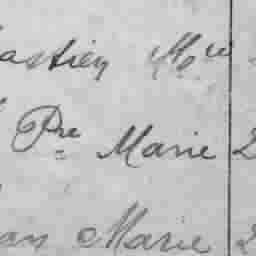 astien Mie
Pre Marie 2
an Marie 2